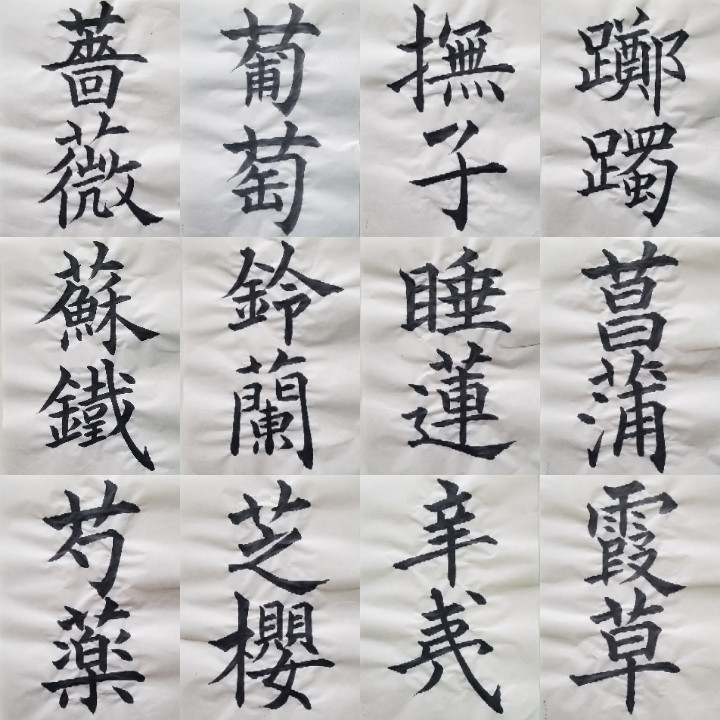 薔薇
葡萄
撫子
躑躅
蘇鐵
鈴蘭
睡蓮
菖蒲
芍薬
芝櫻
辛夷
霞草